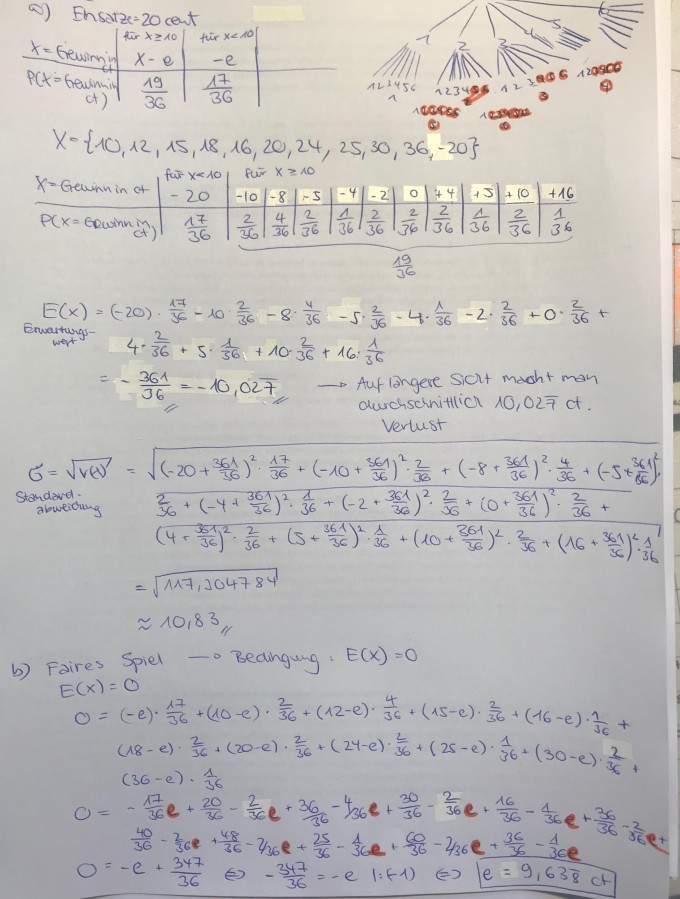 a) Einsatz=20 cent
X=Gewinn in ct | für X≥10 X-e | für X<10 -e
P(X=Gewinn in ct) | 19/36 | 17/36
1 2 2
1 2 3 4 5 6
X={10, 12, 15, 18, 16, 20, 24, 25, 30, 36, -20}
für X<10 für X≥10
X=Gewinn in ct | -20 | -10 | -8 | -5 | -4 | -2 | 0 | +4 | +5 | +10 | +16
P(X=Gewinn in ct) | 17/36 | 2/36 | 4/36 | 2/36 | 1/36 | 2/36 | 2/36 | 2/36 | 1/36 | 2/36 | 1/36
19/36
E(x) = (-20)·17/36 -10·2/36 -8·4/36 -5·2/36 -4·1/36 -2·2/36 +0·2/36 +
Erwartungswert
4·2/36 + 5·1/36 +10·2/36 + 16·1/36
= -361/36 = -10,027̅ → Auf längere Sicht macht man
durchschnittlich 10,027̅ ct.
Verlust
σ = √V(x) = √(-20+361/36)²·17/36 + (-10+361/36)²·2/36 + (-8+361/36)²·4/36 + (-5+361/36)²·
Standardabweichung
2/36 + (-4+361/36)²·1/36 + (-2+361/36)²·2/36 + (0+361/36)²·2/36 +
(4+361/36)²·2/36 + (5+361/36)²·1/36 + (10+361/36)²·2/36 + (16+361/36)²·1/36
= √117,304784
≈ 10,83
b) Faires Spiel → Bedingung: E(X)=0
E(x)=0
0=(-e)·17/36 +(10-e)·2/36 +(12-e)·4/36 +(15-e)·2/36 +(16-e)·1/36 +
(18-e)·2/36 +(20-e)·2/36 +(24-e)·2/36 +(25-e)·1/36 +(30-e)·2/36 +
(36-e)·1/36
0= -17/36e + 20/36 - 2/36e + 36/36 - 4/36e + 30/36 - 2/36e + 16/36 - 1/36e + 36/36 - 2/36e+
40/36 - 2/36e + 48/36 - 2/36e + 25/36 - 1/36e + 60/36 - 2/36e + 36/36 - 1/36e
0= -e + 347/36 ⇔ -347/36 = -e |:(-1) ⇔ e = 9,638̅ ct